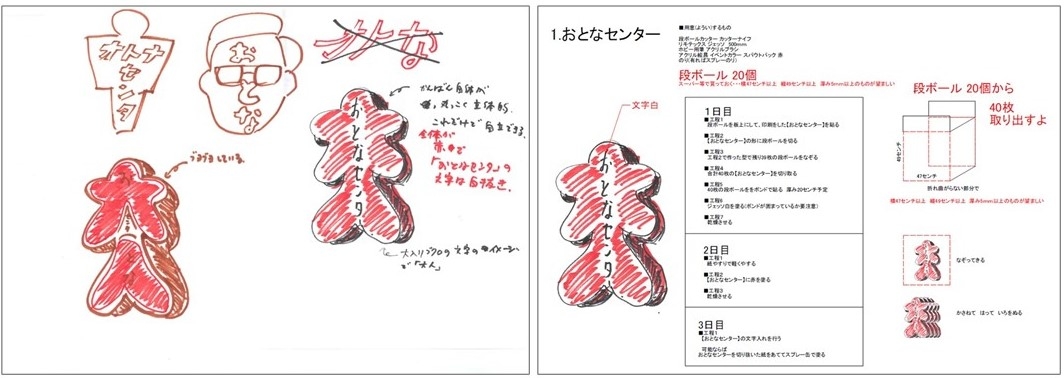 オトナ
センタ
おとな
オトナ
かんばん自体が
これだけで自立できる。
全体が
赤で
「おとなセンタ」の
文字は白抜き。
おとなセンタ
大入りブクロの文字のイメージ
で「大人」
1.おとなセンター
■用意(ようい)するもの
段ボールカッター カッターナイフ
リモテックス ジェッソ 500mm
ホビー用筆 アクリルブラシ
アクリル絵具 イベントカラー スパウトパック 赤
のり(有ればスプレーのり)
段ボール 20個
スーパー等で貰っておく…横47センチ以上 縦49センチ以上 厚み5mm以上のものが望ましい
文字白
おとなセンタ
1日目
■工程1
段ボールを板上にして、印刷をした【おとなセンター】を貼る
■工程2
【おとなセンター】の形に段ボールを切る
■工程3
工程2で作った型で残り39枚の段ボールをなぞる
■工程4
合計40枚の【おとなセンター】を切り取る
■工程5
40枚の段ボールををボンドで貼る 厚み20センチ予定
■工程6
ジェッソ白を塗る(ボンドが固まっているか要注意)
■工程7
乾燥させる
2日目
■工程1
紙やすりで軽くやする
■工程2
【おとなセンター】に赤を塗る
■工程3
乾燥させる
3日目
■工程1
【おとなセンター】の文字入れを行う
可能ならば
おとなセンターを切り抜いた紙をあててスプレー缶で塗る
段ボール 20個から
40枚
取り出すよ
49センチ
47センチ
折れ曲がらない部分で
横47センチ以上 縦49センチ以上 厚み5mm以上のものが望ましい
なぞってきる
かさねて はって いろをぬる